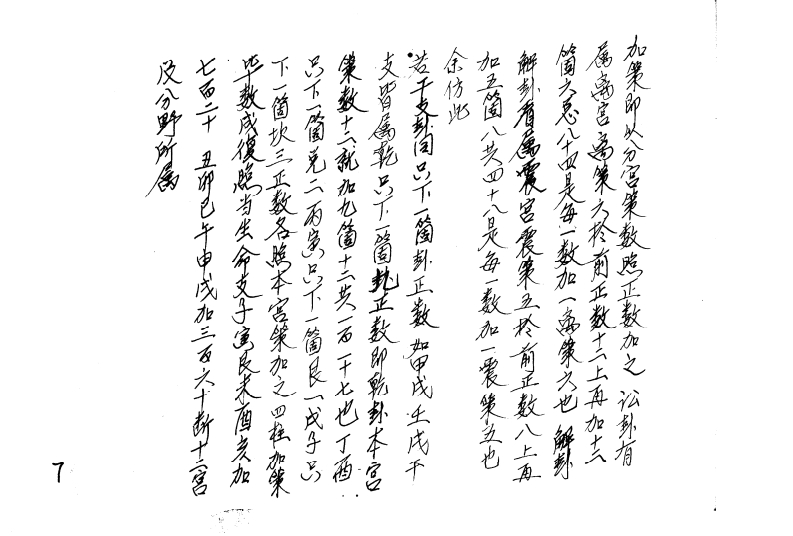 加策即以分宫策数照正数加之 讼卦有
属离宫离策六於前正数十二上再加十二
箇六总八十四是每一数加一离策六也 解卦
解卦有属震宫震策五於前正数八上再
加五箇八共四十八是每一数加一震策五也
余仿此
若干支卦同只下一箇卦正数如甲戌壬戌干
支皆属乾只下一箇乾正数即乾卦本宫
策数十二就加九箇十二共一百一十七也丁酉
只下一箇兑二丙寅只下一箇艮一戊子只
下一箇坎三正数各照本宫策加之四柱加策
毕数成後照当生命支子寅辰未酉亥加
七百二十 丑卯巳午申戌加三百六十断十二宫
及分野所属
7